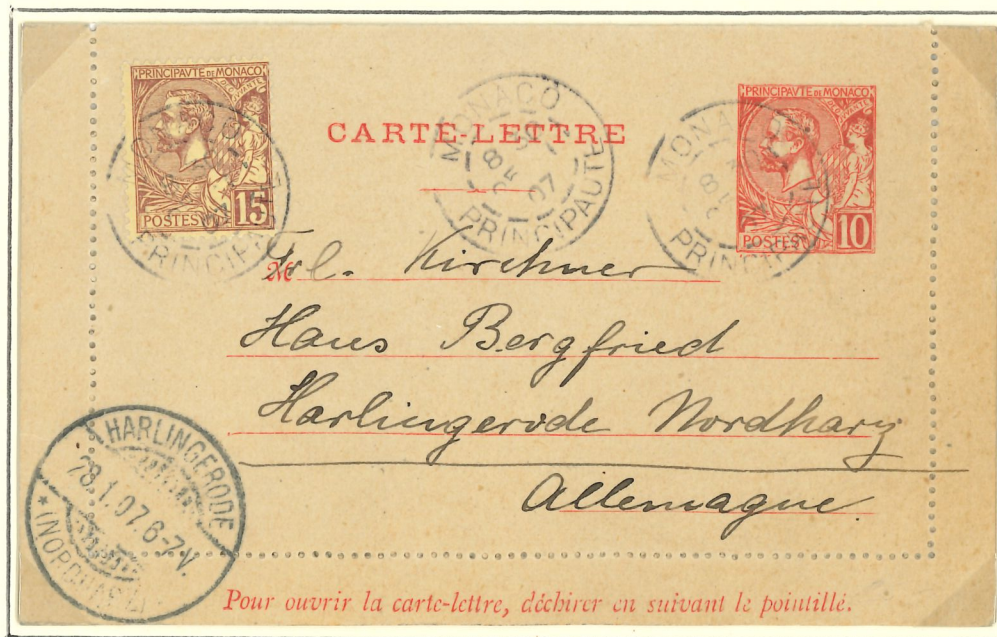 PRINCIPAVTE DE MONACO
POSTES 15
MONACO
PRINCIPAUTÉ
07
PRINCIPAVTE DE MONACO
POSTES 10
CARTE-LETTRE
M
Frl. Kirchner
Haus Bergfried
Harlingerode Nordharz
Allemagne
HARLINGERODE
28.1.07.6-7V.
Pour ouvrir la carte-lettre, déchirer en suivant le pointillé.